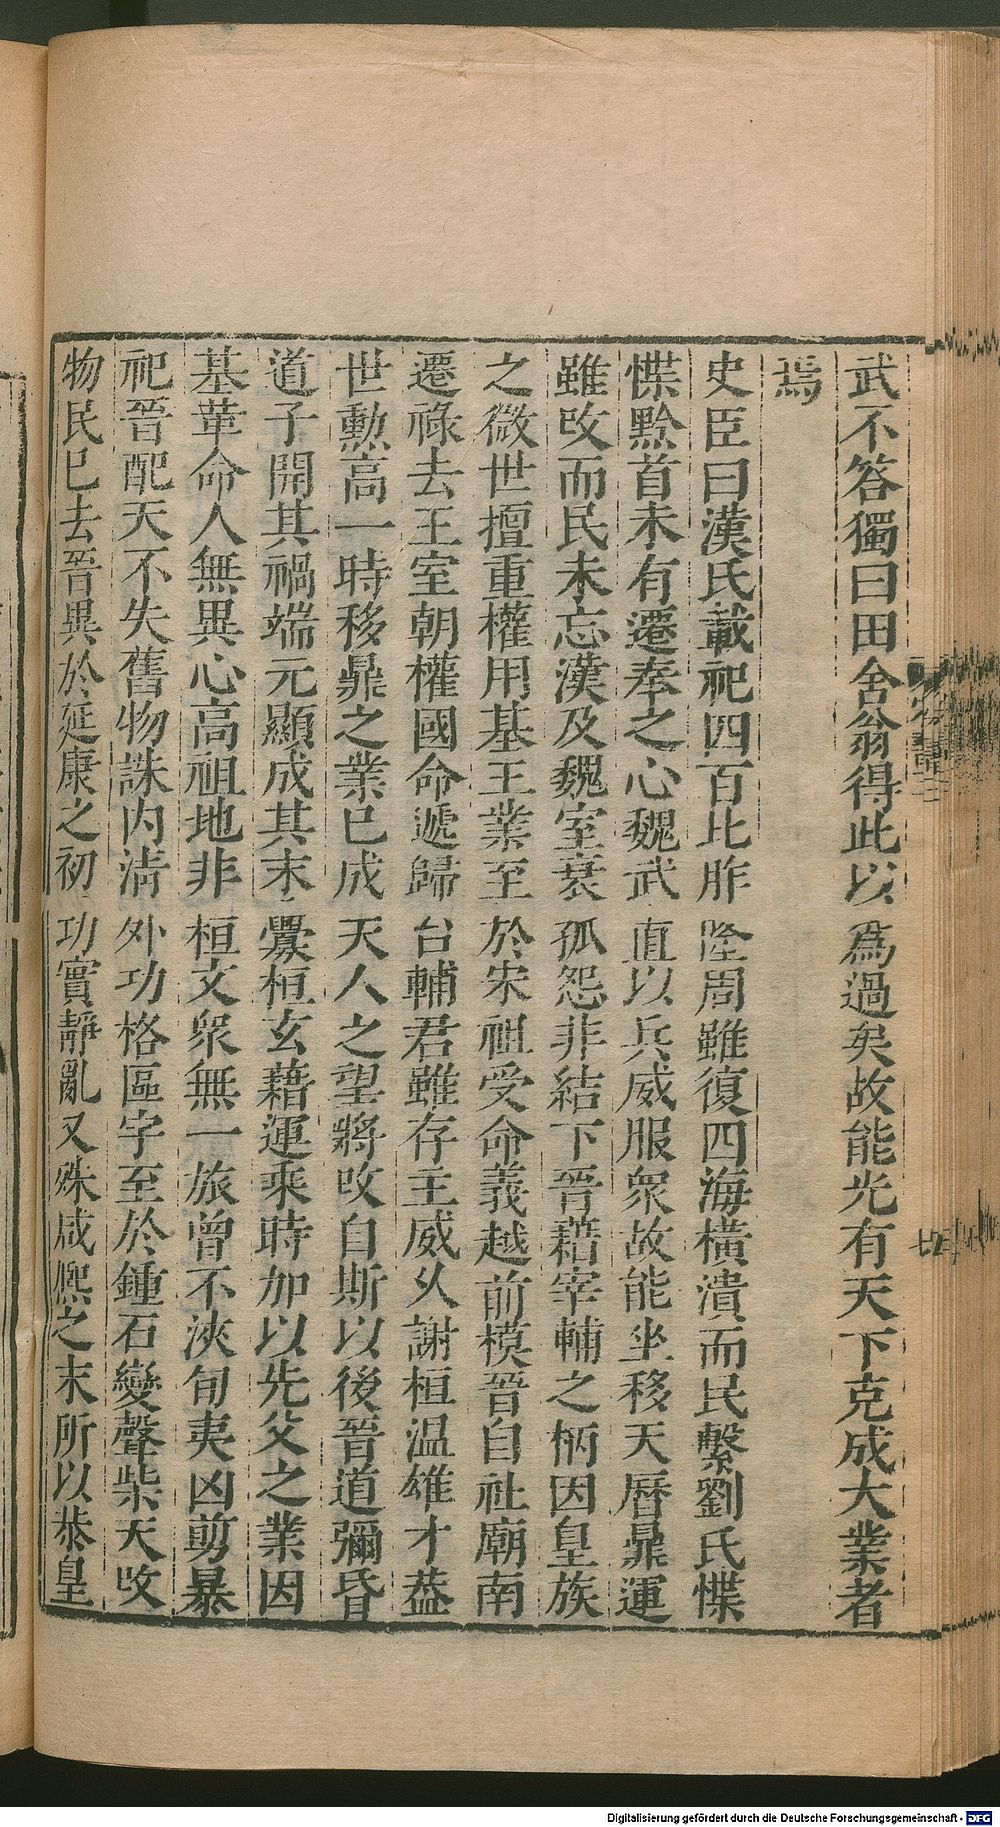 武不答獨曰田舍翁得此以爲過矣故能光有天下克成大業者
焉
史臣曰漢氏載祀四百比胙隆周雖復四海橫潰而民繫劉氏惵
惵黔首未有遷奉之心魏武直以兵威服衆故能坐移天曆鼎運
雖攺而民未忘漢及魏室衰孤怨非結下晉藉宰輔之柄因皇族
之微世擅重權用基王業至於宋祖受命義越前模晉自社廟南
遷祿去王室朝權國命遞歸台輔君雖存主威乆謝桓温雄才葢
世勲高一時移鼎之業已成天人之望將攺自斯以後晉道彌昏
道子開其禍端元顯成其末釁桓玄藉運乘時加以先父之業因
基革命人無異心高祖地非桓文衆無一旅曾不浹旬夷凶剪暴
祀晉配天不失舊物誅内清外功格區宇至於鍾石變聲柴天攺
物民已去晉異於延康之初功實靜亂又殊咸熙之末所以恭皇
Digitalisierung gefördert durch die Deutsche Forschungsgemeinschaft - DFG